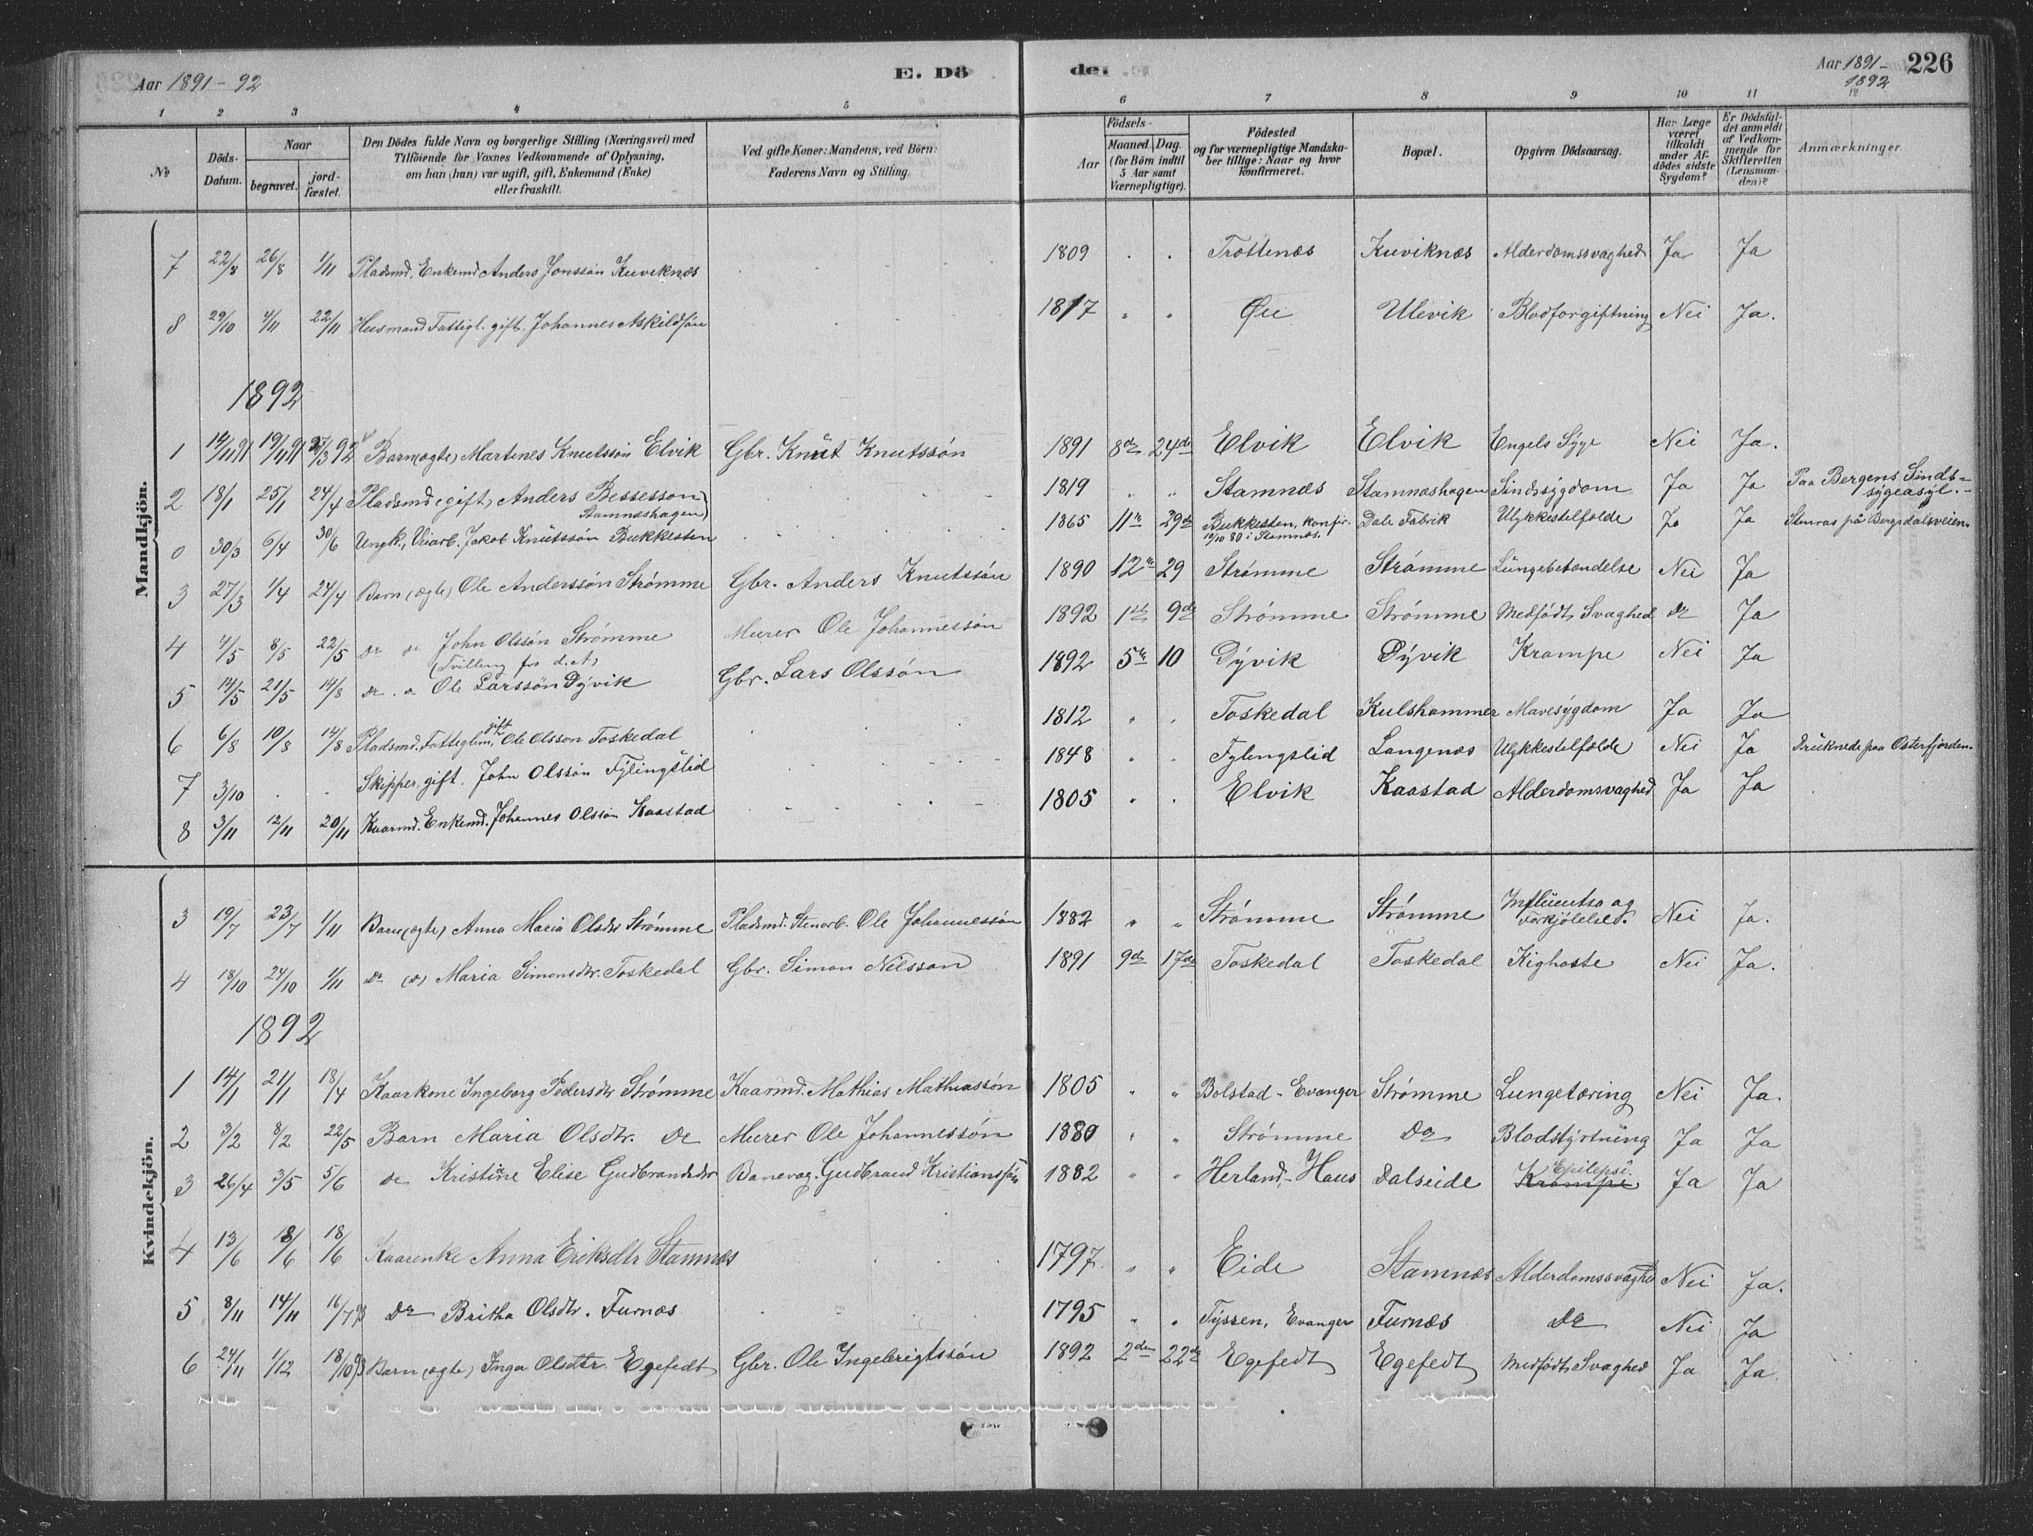 Aar 1891-92
E. Dö
de.
Aar 1891-
1892
226
1 2 3 4 5 6 7 8 9 10 11 12
No
Döds-Datum.
Naar
begravet.
jord-fæstet.
Den Dödes fulde Navn og borgerlige Stilling (Næringsvei) med
Tilföiende for Voxnes Vedkommende af Oplysning,
om han (hun) var ugift, gift, Enkemand (Enke)
eller fraskilt.
Ved gifte Koner: Mandens, ved Börn:
Faderens Navn og Stilling.
Födsels-
Aar
Maaned.
Dag.
(for Börn indtil
5 Aar samt
Værnepligtige).
Födested
og for værnepligtige Mandska-
ber tillige: Naar og hvor
konfirmeret.
Bopæl.
Opgiven Dödsaarsag.
Har Læge
været
tilkaldt
under Af-
dödes sidste
Sygdom?
Er Dödsfal-
det anmeldt
af Vedkom-
mende for
Skifteretten
(Lensman-
den)?
Anmærkninger.
Mandkjön.
7 22/8 26/8 1/11 Pladsmd. Enkemd Anders Jonssön Kuviknæs 1809 Trottenæs Kuviknæs Alderdomssvaghed Ja Ja
8 29/10 4/11 22/11 Husmand Fattigl. gift. Johannes Askildsön 1817 Øie Ulevik Blodforgiftning Nei Ja.
1892
1 14/11 91 19/11 91 27/3 92 Barn (ægte) Martines Knutssön Elvik Gbr. Knut Knutssön 1891 8de 24de Elvik Elvik Engels Syge Nei Ja.
2 18/1 25/1 24/4 Pladsmd (gift) Anders Bessesson
Stamnæshagen 1819 Stamnæs Stamnæshagen Sindssygdom Ja Ja Paa Bergens Sinds-
sygeasyl.
0 30/3 6/4 30/6 Ungk., Veiarb. Jakob Knutssön Bukkesten 1865 11te 29de Bukkesten, konfir.
10/10 80 i Stamnæs. Dale Fabrik Ulykkestilfælde Ja Ja Stenras på Bergsdalsveien
3 27/3 1/4 24/4 Barn (ægte) Ole Anderssön Strömme Gbr. Anders Knutssön 1890 12te 29 Strömme Strömme Lungebetændelse Nei Ja
4 4/5 8/5 22/5 do do John Olssön Strömme
(Tvilling fra d.et) Murer Ole Johannessön 1892 1ste 9de Strömme Strömme Medfödt Svaghed do Ja
5 14/5 21/5 14/8 do. Ole Larssön Dyvik Gbr. Lars Olssön 1892 5te 10 Dyvik Dyvik Krampe Nei Ja
6 6/8 10/8 14/8 Pladsmd. Fattiglem, gift Ole Olsson Toskedal 1812 Toskedal Kulshammer Mavesygdom Ja Ja
7 3/10 Skipper gift. John Olssön Fylingslid 1848 Fylingslid Langenæs Ulykkestilfælde Nei Ja Druknede paa Osterfjorden
8 3/11 12/11 20/11 Kaarmd. Enkemd. Johannes Olsson Kaastad 1805 Elvik Kaastad Alderdomsvaghed Ja Ja
Kvindekjön.
3 19/7 23/7 1/11 Barn (ægte) Anna Maria Olsdtr Strömme Pladsmd. Stenarb. Ole Johannessön 1882 Strömme Strömme Influentsa og
Forkjölelse. Nei Ja.
4 18/10 24/10 1/11 Do (do) Maria Simonsdtr. Toskedal Gbr. Simon Nilsson 1891 9de 17de Toskedal Toskedal Kighoste Nei Ja.
1892
1 14/1 21/1 18/4 Kaarkone Ingeborg Pedersdtr Strömme Kaarmd. Mathias Mathiassön 1805 Bolstad - Evanger Strömme Lungetæring Nei Ja.
2 3/2 8/2 22/5 Barn Maria Olsdtr. Do Murer Ole Johannessön 1880 Strömme Do Blodstyrtning Ja Ja
3 26/4 3/5 5/6 do Kristine Elise Gudbrandsdtr Banevog. Gudbrand Kristianssön 1882 Herland - Haus Dalseide Krampe Epilepsi. Ja Ja
4 13/6 18/6 18/6 Kaarenke Anna Eriksdtr Stamnæs 1797. Eide Stamnæs Alderdomssvaghed Nei Ja.
5 8/11 14/11 16/7 93 Do Britha Olsdtr. Furnæs 1795 Tyssen, Evanger Furnæs Do Nei Ja
6 24/11 1/12 18/10 93 Barn (ægte) Inga Olsdtr. Egefedt Gbr. Ole Ingebrigtssön 1892 2den 22de Egefedt Egefedt Medfödt Svaghed Ja Ja.